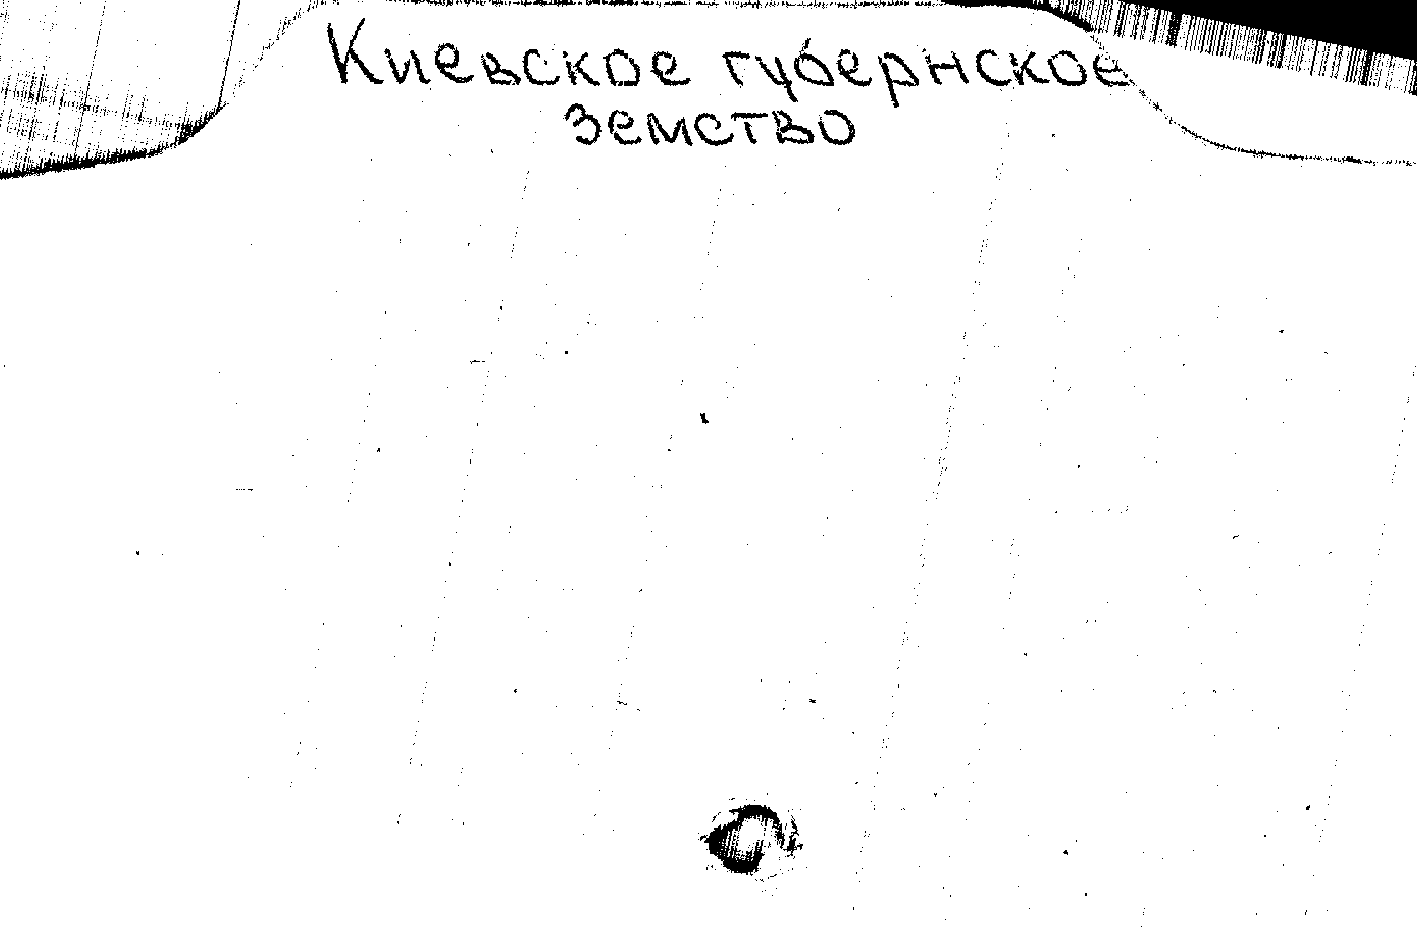 Киевское губернское
земство